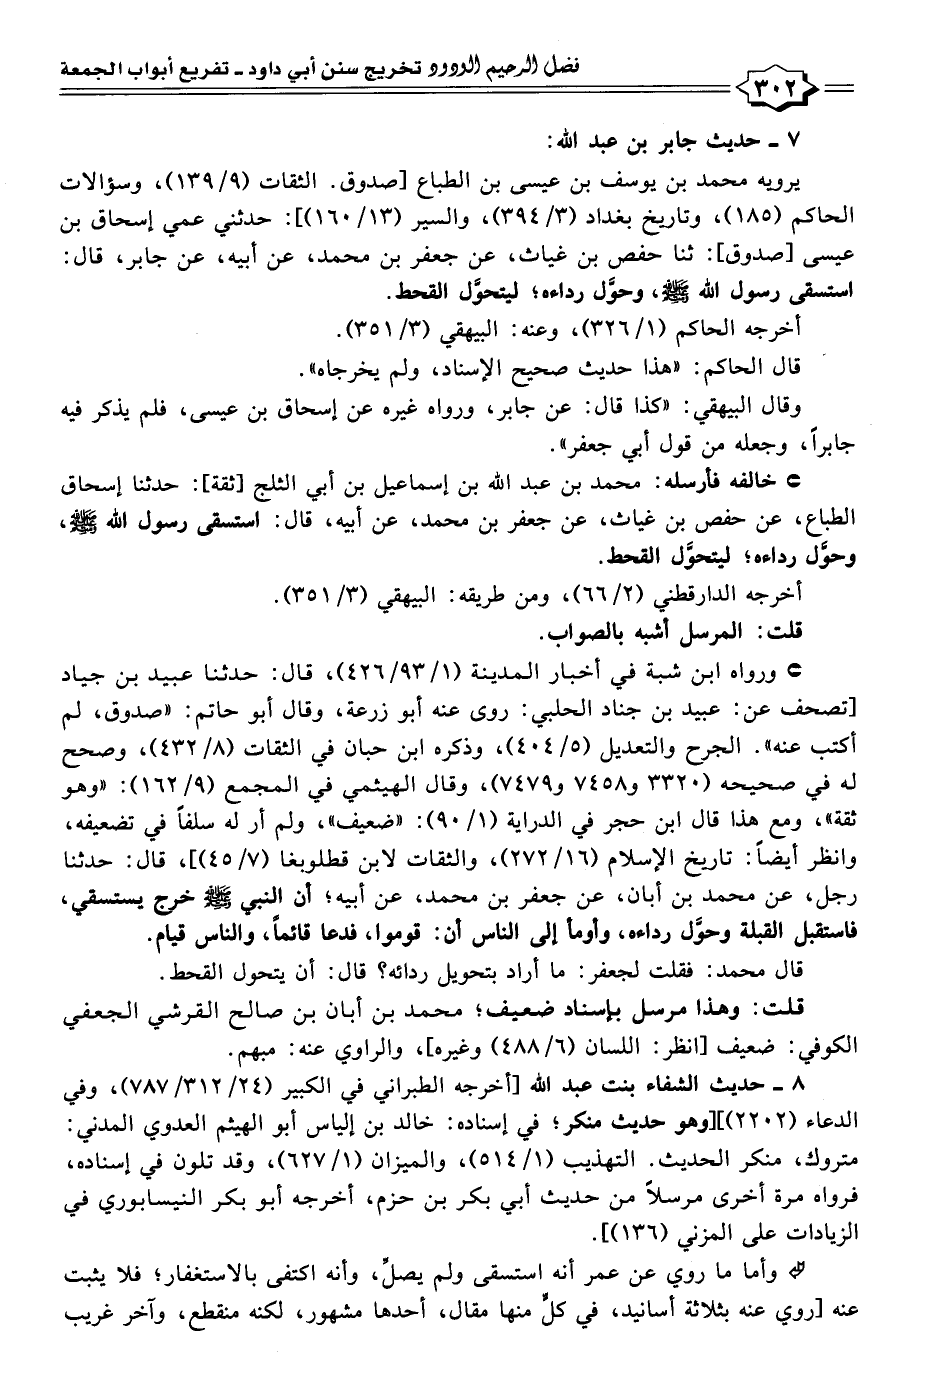 فضل الرحيم الودود تخريج سنن أبي داود ـ تفريع أبواب الجمعة
٣٠٢
٧ ـ حديث جابر بن عبد الله:
يرويه محمد بن يوسف بن عيسى بن الطباع [صدوق. الثقات (١٣٩/٩)، وسؤالات
الحاكم (١٨٥)، وتاريخ بغداد (٣٩٤/٣)، والسير (١٦٠/١٣)]: حدثني عمي إسحاق بن
عيسى [صدوق]: ثنا حفص بن غياث، عن جعفر بن محمد، عن أبيه، عن جابر، قال:
استسقى رسول الله ﷺ، وحوَّل رداءه؛ ليتحوَّل القحط.
أخرجه الحاكم (٣٢٦/١)، وعنه: البيهقي (٣٥١/٣).
قال الحاكم: «هذا حديث صحيح الإسناد، ولم يخرجاه».
وقال البيهقي: «كذا قال: عن جابر، ورواه غيره عن إسحاق بن عيسى، فلم يذكر فيه
جابراً، وجعله من قول أبي جعفر».
خالفه فأرسله: محمد بن عبد الله بن إسماعيل بن أبي الثلج [ثقة]: حدثنا إسحاق
الطباع، عن حفص بن غياث، عن جعفر بن محمد، عن أبيه، قال: استسقى رسول الله ﷺ،
وحوَّل رداءه؛ ليتحوَّل القحط.
أخرجه الدارقطني (٦٦/٢)، ومن طريقه: البيهقي (٣٥١/٣).
قلت: المرسل أشبه بالصواب.
ورواه ابن شبة في أخبار المدينة (٤٢٦/٩٣/١)، قال: حدثنا عبيد بن جياد
[تصحف عن: عبيد بن جناد الحلبي: روى عنه أبو زرعة، وقال أبو حاتم: «صدوق، لم
أكتب عنه». الجرح والتعديل (٤٠٤/٥)، وذكره ابن حبان في الثقات (٤٣٢/٨)، وصحح
له في صحيحه (٣٣٢٠ و٧٤٥٨ و٧٤٧٩)، وقال الهيثمي في المجمع (١٦٢/٩): «وهو
ثقة»، ومع هذا قال ابن حجر في الدراية (٩٠/١): «ضعيف»، ولم أر له سلفاً في تضعيفه،
وانظر أيضاً: تاريخ الإسلام (٢٧٢/١٦)، والثقات لابن قطلوبغا (٤٥/٧)]، قال: حدثنا
رجل، عن محمد بن أبان، عن جعفر بن محمد، عن أبيه؛ أن النبي ﷺ خرج يستسقي،
فاستقبل القبلة وحوَّل رداءه، وأومأ إلى الناس أن: قوموا، فدعا قائماً، والناس قيام.
قال محمد: فقلت لجعفر: ما أراد بتحويل ردائه؟ قال: أن يتحول القحط.
قلت: وهذا مرسل بإسناد ضعيف؛ محمد بن أبان بن صالح القرشي الجعفي
الكوفي: ضعيف [انظر: اللسان (٤٨٨/٦) وغيره]، والراوي عنه: مبهم.
٨ ـ حديث الشفاء بنت عبد الله [أخرجه الطبراني في الكبير (٧٨٧/٣١٢/٢٤)، وفي
الدعاء (٢٢٠٢)][وهو حديث منكر؛ في إسناده: خالد بن إلياس أبو الهيثم العدوي المدني:
متروك، منكر الحديث. التهذيب (٥١٤/١)، والميزان (٦٢٧/١)، وقد تلون في إسناده،
فرواه مرة أخرى مرسلاً من حديث أبي بكر بن حزم، أخرجه أبو بكر النيسابوري في
الزيادات على المزني (١٣٦)].
وأما ما روي عن عمر أنه استسقى ولم يصلِّ، وأنه اكتفى بالاستغفار؛ فلا يثبت
عنه [روي عنه بثلاثة أسانيد، في كلٍّ منها مقال، أحدها مشهور، لكنه منقطع، وآخر غريب